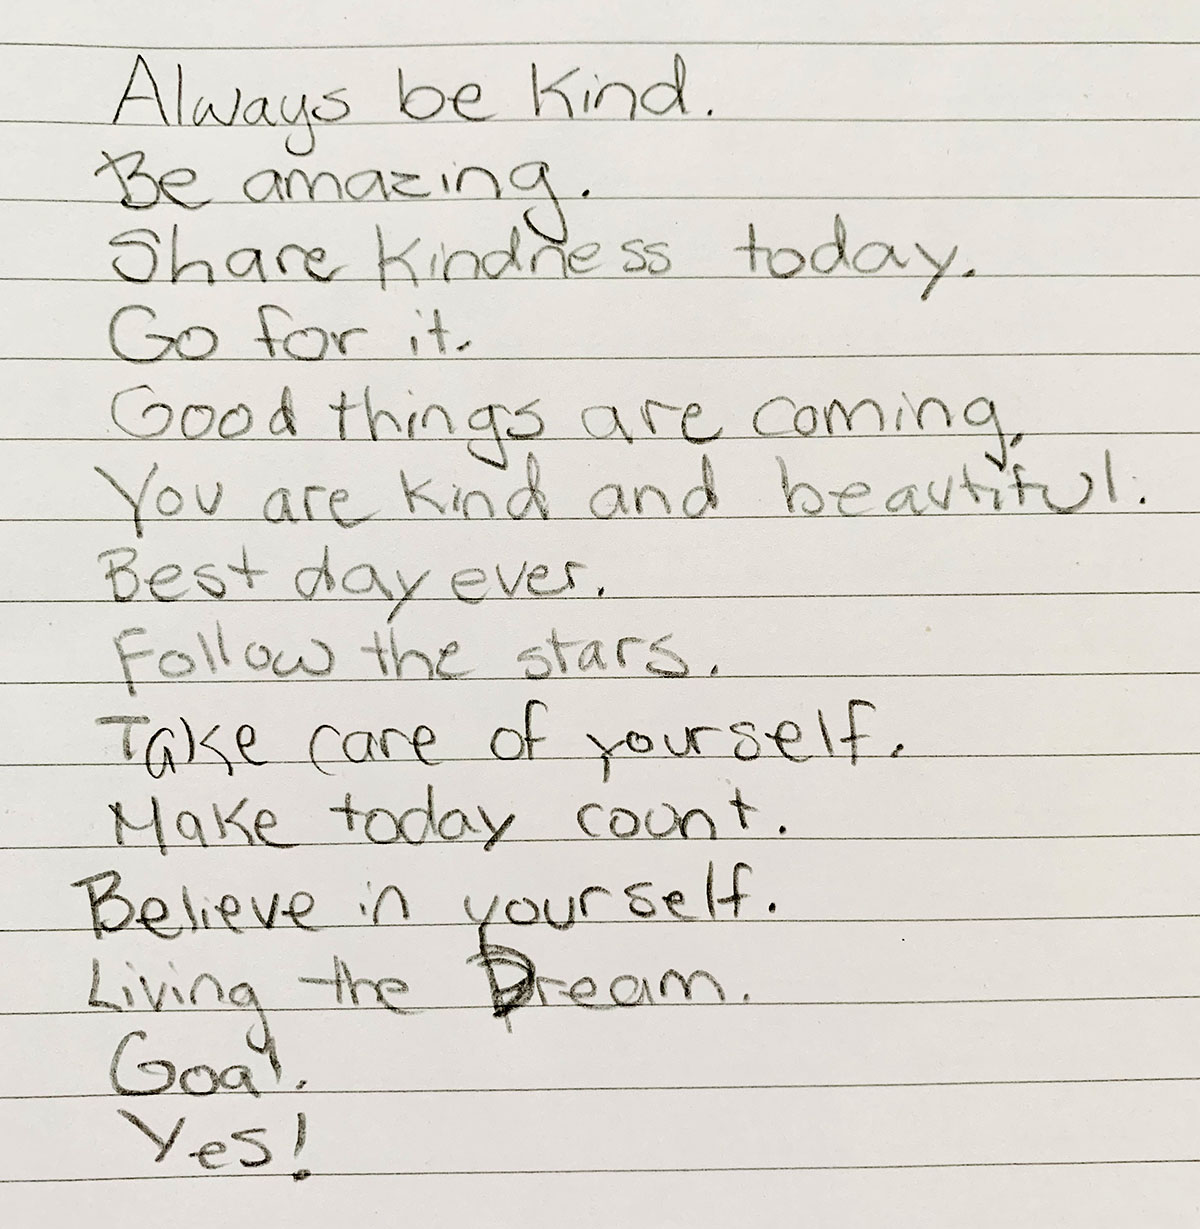 Always be kind.
Be amazing.
Share kindness today.
Go for it.
Good things are coming.
You are kind and beautiful.
Best day ever.
Follow the stars.
Take care of yourself.
Make today count.
Believe in yourself.
Living the Dream.
Goal.
Yes!